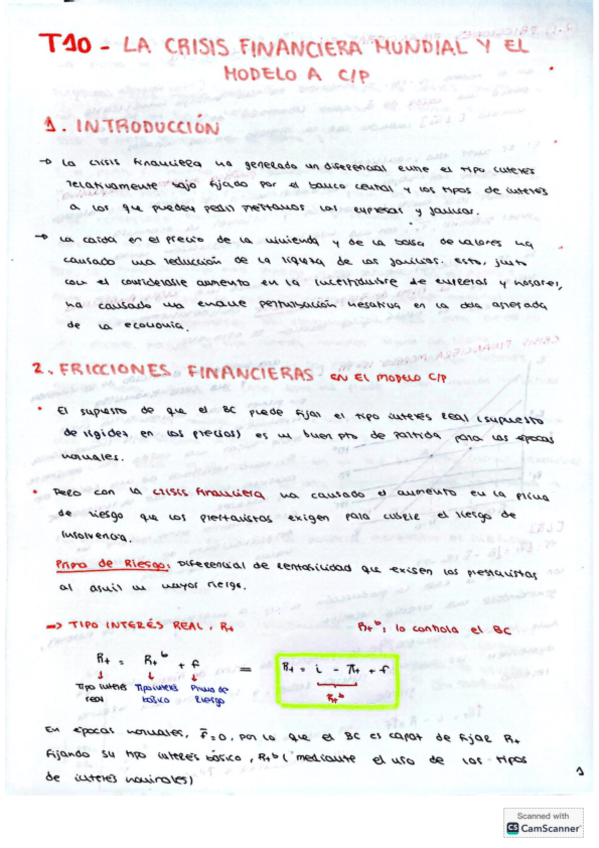 T10 - LA CRISIS FINANCIERA MUNDIAL Y EL
MODELO A C/P
1. INTRODUCCIÓN
→ La crisis financiera ha generado un diferencial entre el tipo interés
relativamente bajo fijado por el banco central y los tipos de interés
a los que pueden pedir préstamos las empresas y familias.
→ La caída en el precio de la vivienda y de la bolsa de valores ha
causado una reducción de la riqueza de las familias. Esto, junto
con el considerable aumento en la incertidumbre de empresas y hogares,
ha causado una enorme perturbación negativa en la dda agregada
de la economía.
2. FRICCIONES FINANCIERAS EN EL MODELO C/P
• El supuesto de que el BC puede fijar el tipo interés real (supuesto
de rigidez en los precios) es un buen pto de partida para las épocas
normales.
• Pero con la crisis financiera ha causado el aumento en la prima
de riesgo que los prestamistas exigen para cubrir el riesgo de
insolvencia.
Prima de Riesgo: Diferencial de rentabilidad que exigen los prestamistas
al asumir un mayor riesgo.
⇒ TIPO INTERÉS REAL, Rt
Rt^b: lo controla el BC
Rt = Rt^b + f = Rt = i - πt + f
Tipo interés real Tipo interés básico Prima de Riesgo Rt^b
En épocas normales, f̄=0, por lo que el BC es capaz de fijar Rt
fijando su tipo interés básico, Rt^b (mediante el uso de los tipos
de interés nominales)
1
Scanned with
CS CamScanner